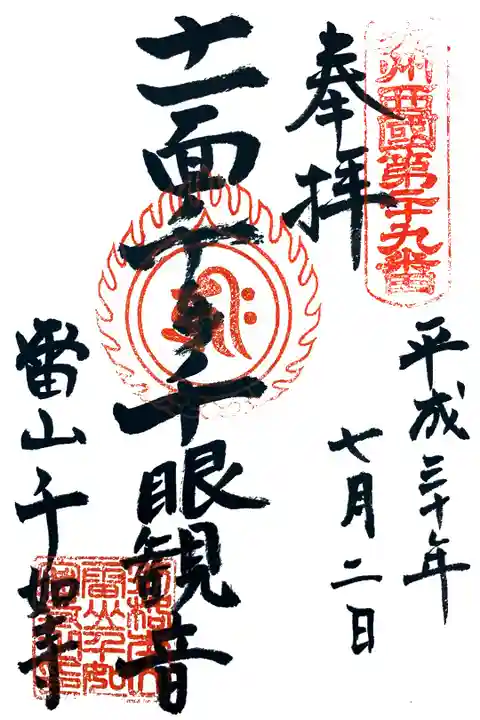 九州西國第二十九番
奉拝
平成三十年
七月二日
十一面千手千眼観音
雷山千如寺